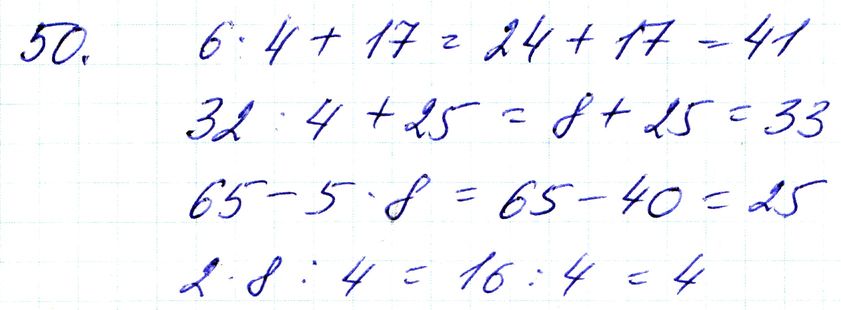 50. 6 · 4 + 17 = 24 + 17 = 41
32 : 4 + 25 = 8 + 25 = 33
65 - 5 · 8 = 65 - 40 = 25
2 · 8 : 4 = 16 : 4 = 4